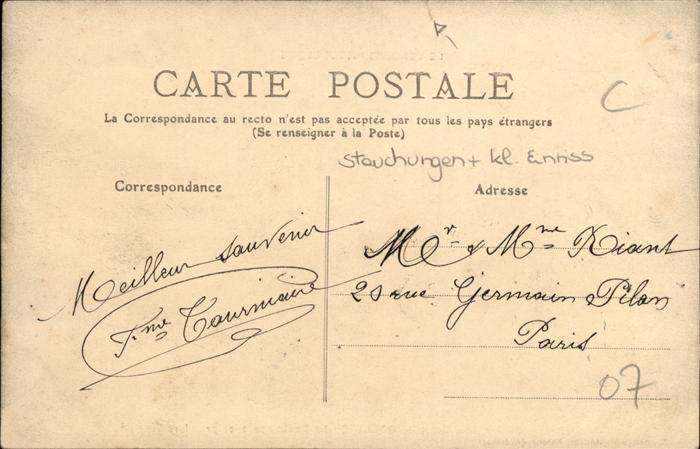 CARTE POSTALE
C
La Correspondance au recto n'est pas acceptée par tous les pays étrangers
(Se renseigner à la Poste)
Stauchungen + kl. Einriss
Correspondance
Adresse
Meilleur souvenir
Mr & Mme Riant
23 rue Germain Pilon
Paris
07